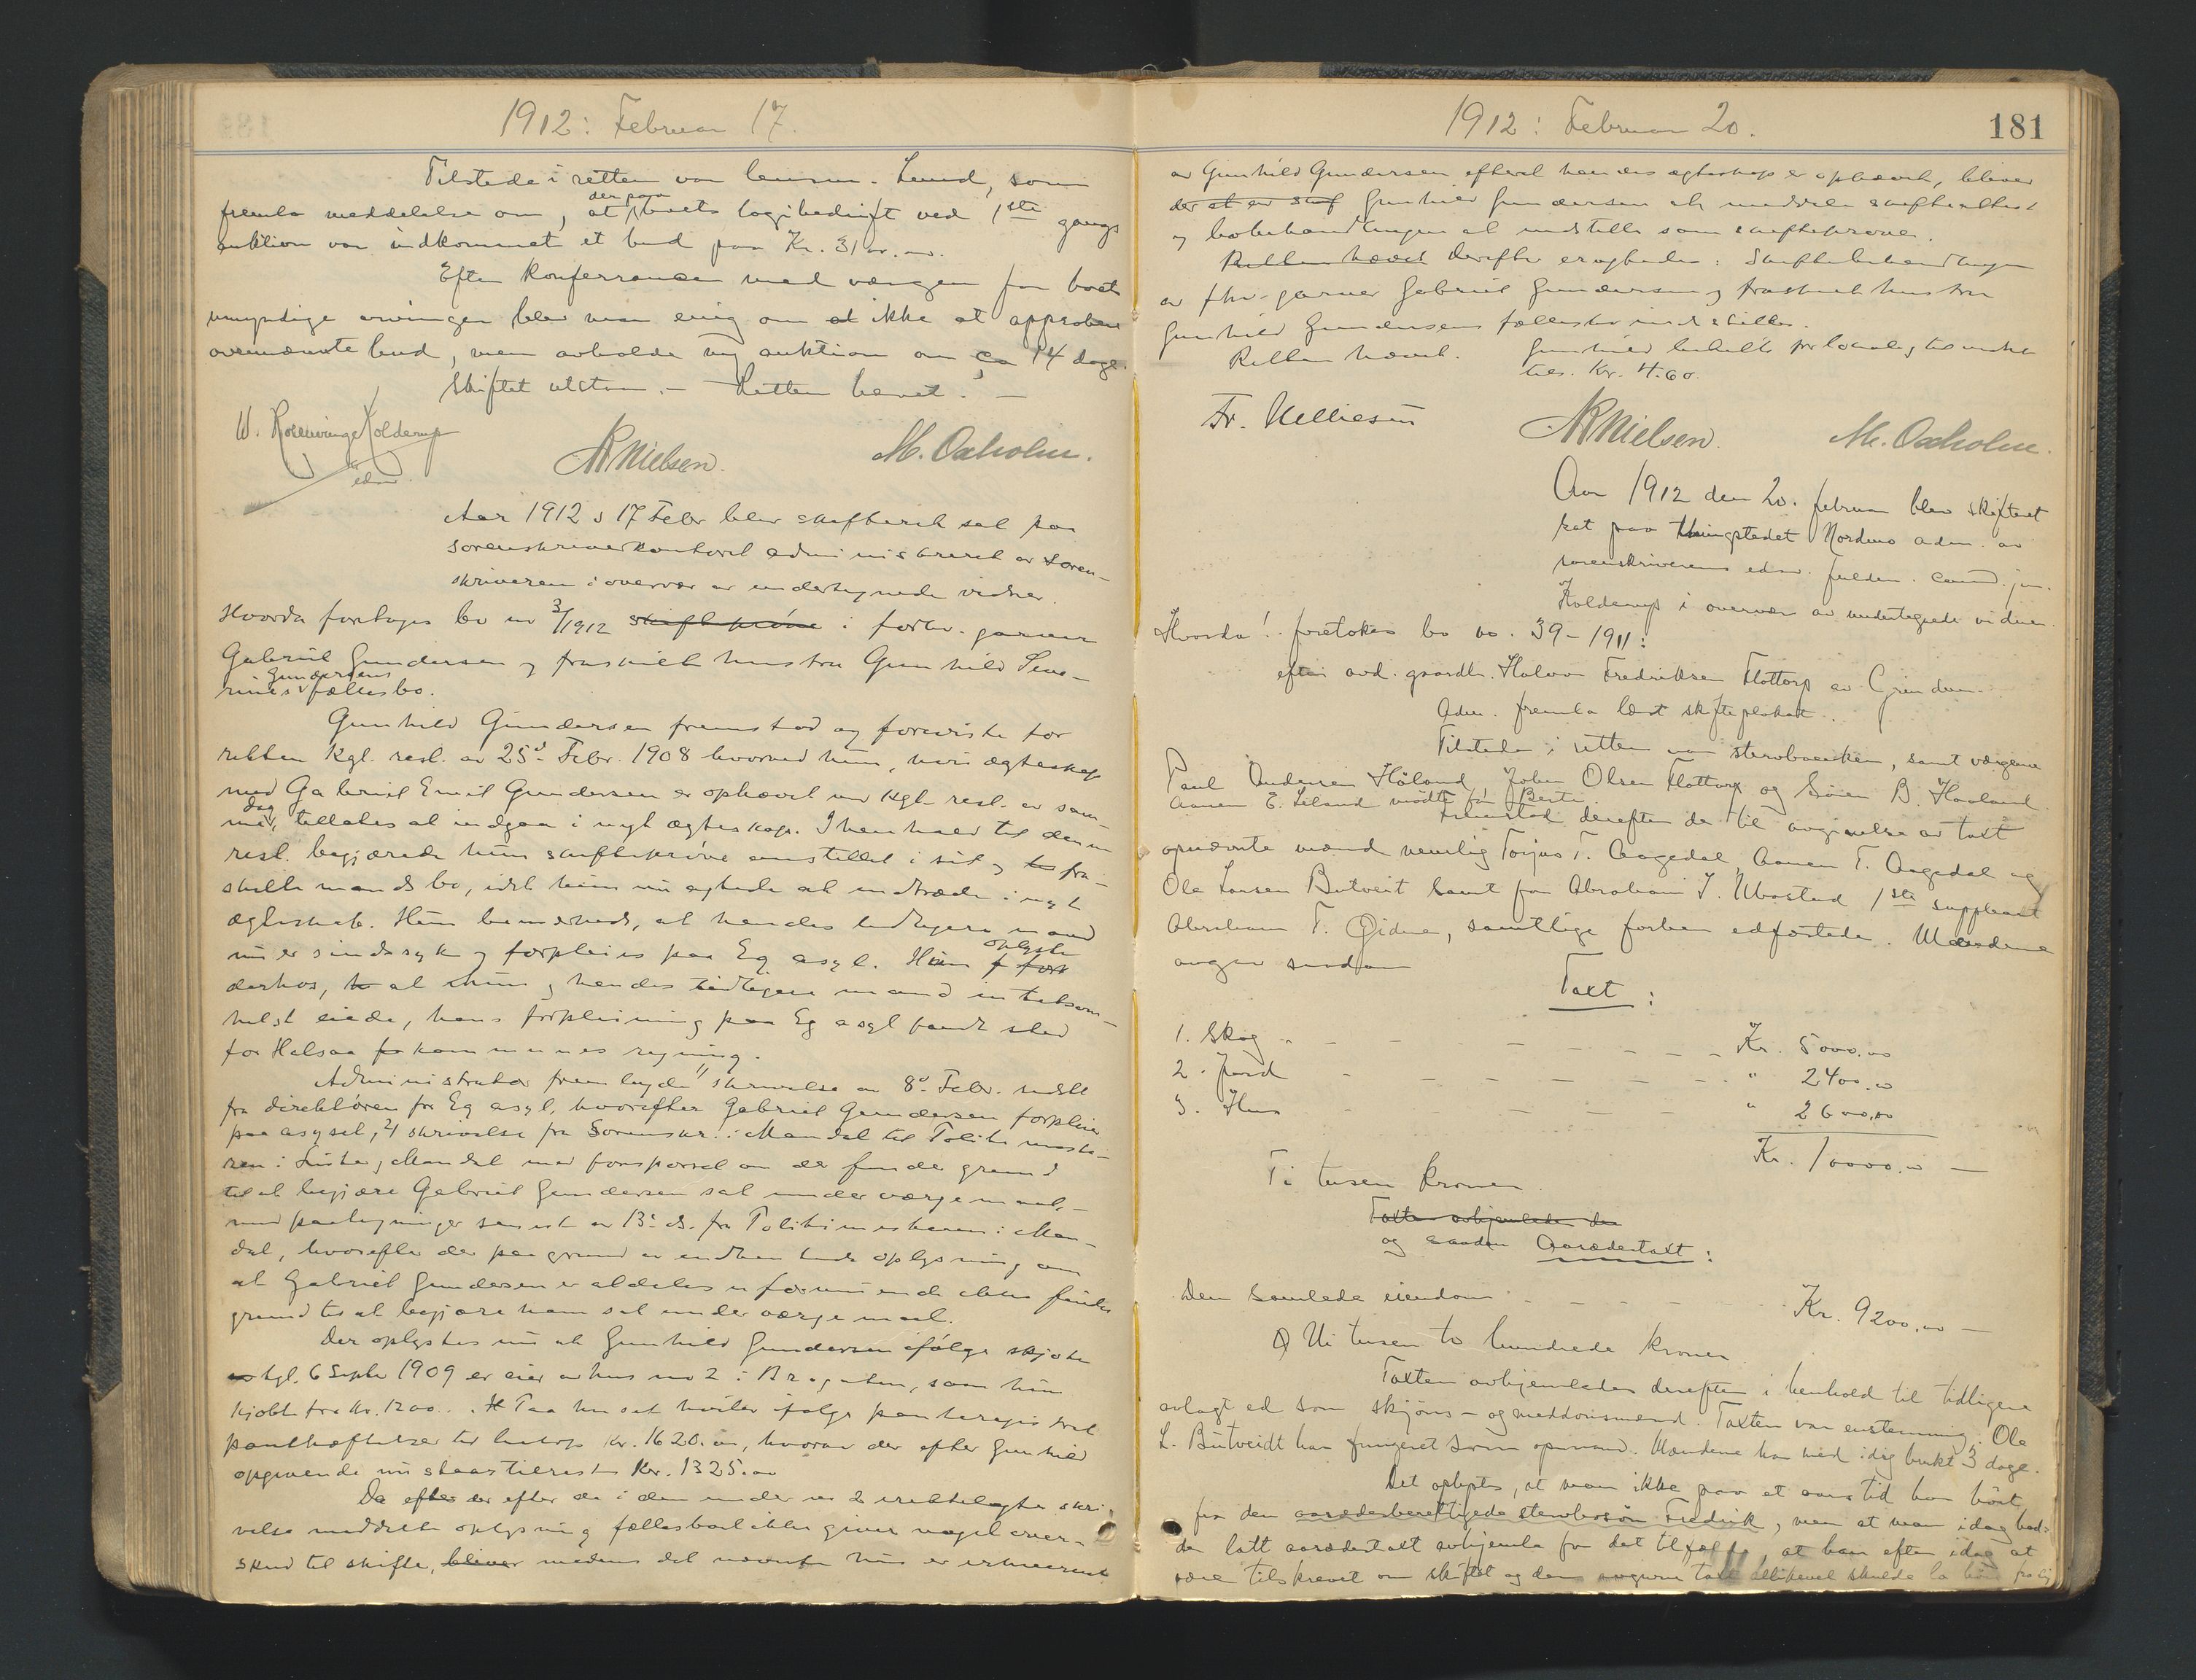 1912: Februar 17.
Tilstede i retten var lensm. Lund, som
fremla meddelelse om, at der paa boets logibedrift ved 1ste gangs
auktion var indkommet et bud paa Kr. 31
Efter Konferranse med værgen for boets
umyndige arvinger blev man enig om at ikke at approbere
ovennævnte bud, men avholde ny auktion om ca 14 dage.
Skiftet utstaar. – Retten hævet. –
W. Rosenvinge Kolderup
edsv.
NRNielsen. M. Oxholm.
Aar 1912 d 17 Febr blev skifteret sat paa
sorenskriverkontoret administreret av soren-
skriveren i overvær av undertegnede vidner.
Hvorda foretoges bo no 3/1912 skifteprøve i forhv. garver
Gabriel Gundersen og fraskilt hustru Gunhild Seve-
rines Gundersens fællesbo.
Gunhild Gundersen fremstod og foreviste for
retten Kgl. resl. av 25d Febr. 1908 hvorved hun, hvis ægteskap
med Gabriel Emil Gundersen er ophævet ved Kgl. resl. av sam-
me dag, tillates at indgaa i nyt ægteskap. I henhold til denne
resl. begjærede hun skifteprøve anstillet i sit og fra-
skilte mands bo, idet hun nu agtede at indtræde i nyt
ægteskab. Hun bemerkede, at hendes tidligere mand
nu er sindssyk og forpleies paa Eg asyl. Hun oplyste
derhos, at hun og hendes tidligere mand intetsom-
helst eiede, hans forpleining paa Eg asyl fandt sted
for Halsaa kommunes regning.
Administrator fremlagde 1) skrivelse av 8d Febr. sidstl
fra direktören for Eg asyl, hvorefter Gabriel Gundersen forpleies
paa asylet, 2) skrivelse fra Sorenskr. i Mandal til Politimeste-
ren i Lister og Mandal med forespørsel om der findes grund
til at begjære Gabriel Gundersen sat under værgemaal, –
med paategninger senest av 13d ds. fra Politimesteren i Man-
dal, hvorefter der paa grund av indhentede oplysning om
at Gabriel Gundersen er aldeles uformuende ikke findes
grund til at begjære ham sat under værgemaal.
Der oplystes nu at Gunhild Gundersen ifølge skjøte
tgl. 6 Septbr 1909 er eier av hus no 2 i Brogaten, som hun
kjøbte for Kr. 1200. Paa huset hviler ifølge panteregistret
panthæftelser til beløp Kr. 1620.00, hvorav der efter Gunhild
opgivende nu staar tilrest Kr. 1325.00
Da efter de i den under no 2 irettelagte skri-
velse meddelte oplysning fællesboet ikke giver noget over-
skud til skifte, bliver medens det nævnte hus er erhvervet
1912: Februar 20.
181
av Gunhild Gundersen efterat hendes ægteskap er ophævet, bliver
Gunhild Gundersen at meddele skifteattest
og bobehandlingen at indstille som skifteprøve.
Retten hævet Derefter eragtedes: Skiftebehandlingen
av fhv. garver Gabriel Gundersen og fraskilt hustru
Gunhild Gundersens fællesbo indstilles.
Retten hævet. Gunhild betalte for lokale og til vidner
tils. Kr. 4.60.
Fr. Nelliesen
NRNielsen. M. Oxholm.
Aar 1912 den 20. februar blev skifteret
sat paa thingstedet Nordmo adm. av
sorenskriverens edsv. fuldm. cand. jur.
Kolderup i overvær av undertegnede vidner.
Hvorda! foretokes bo no. 39 – 1911:
efter avd. gaardbr. Halvor Fredriksen Flottorp av Grindum.
Adm. fremla læst skifteplakat.
Tilstede i retten var stervboenken, samt værgerne
Paul Andersen Höland, John Olsen Flottorp og Sören B. Haaland.
Aanen E. Leland mødte for Berte
Fremstod derefter de til avgivelse av taxt
opnævnte mænd nemlig Torjus T. Aagedal, Aanen T. Aagedal og
Ole Larsen Butveit samt for Abraham J. Ubostad 1ste suppleant
Abraham T. Øidne, samtlige forhen edfæstede. Mændene
avgav saadan
Taxt:
1. Skog – – – – – – Kr. 5000.00
2. Jord – – – – – – " 2400.00
3. Hus – – – – – " 2600.00
Kr. 10000.00 –
Ti tusen kroner.
Taxten avhjemledes der
og saadan Aasædestaxt:
Den samlede eiendom – – – – Kr. 9200.00 –
Ni tusen to hundrede kroner.
Taxten avhjemledes derefter i henhold til tidligere
avlagt ed som skjøns- og meddomsmænd. Taxten var enstemmig. Ole
L. Butveidt har fungeret som opmand. Mændene har med idag brukt 3 dage.
Det oplystes, at man ikke paa et aars tid har hört
fra den aasædesberettigede stervbosön Fredrik, men at man idag had-
de latt aasædestaxt avhjemle for det tilfælde, at han efter idag at
være tilskrevet om skiftet og den avgivne taxt allikevel skulde la høre fra sig